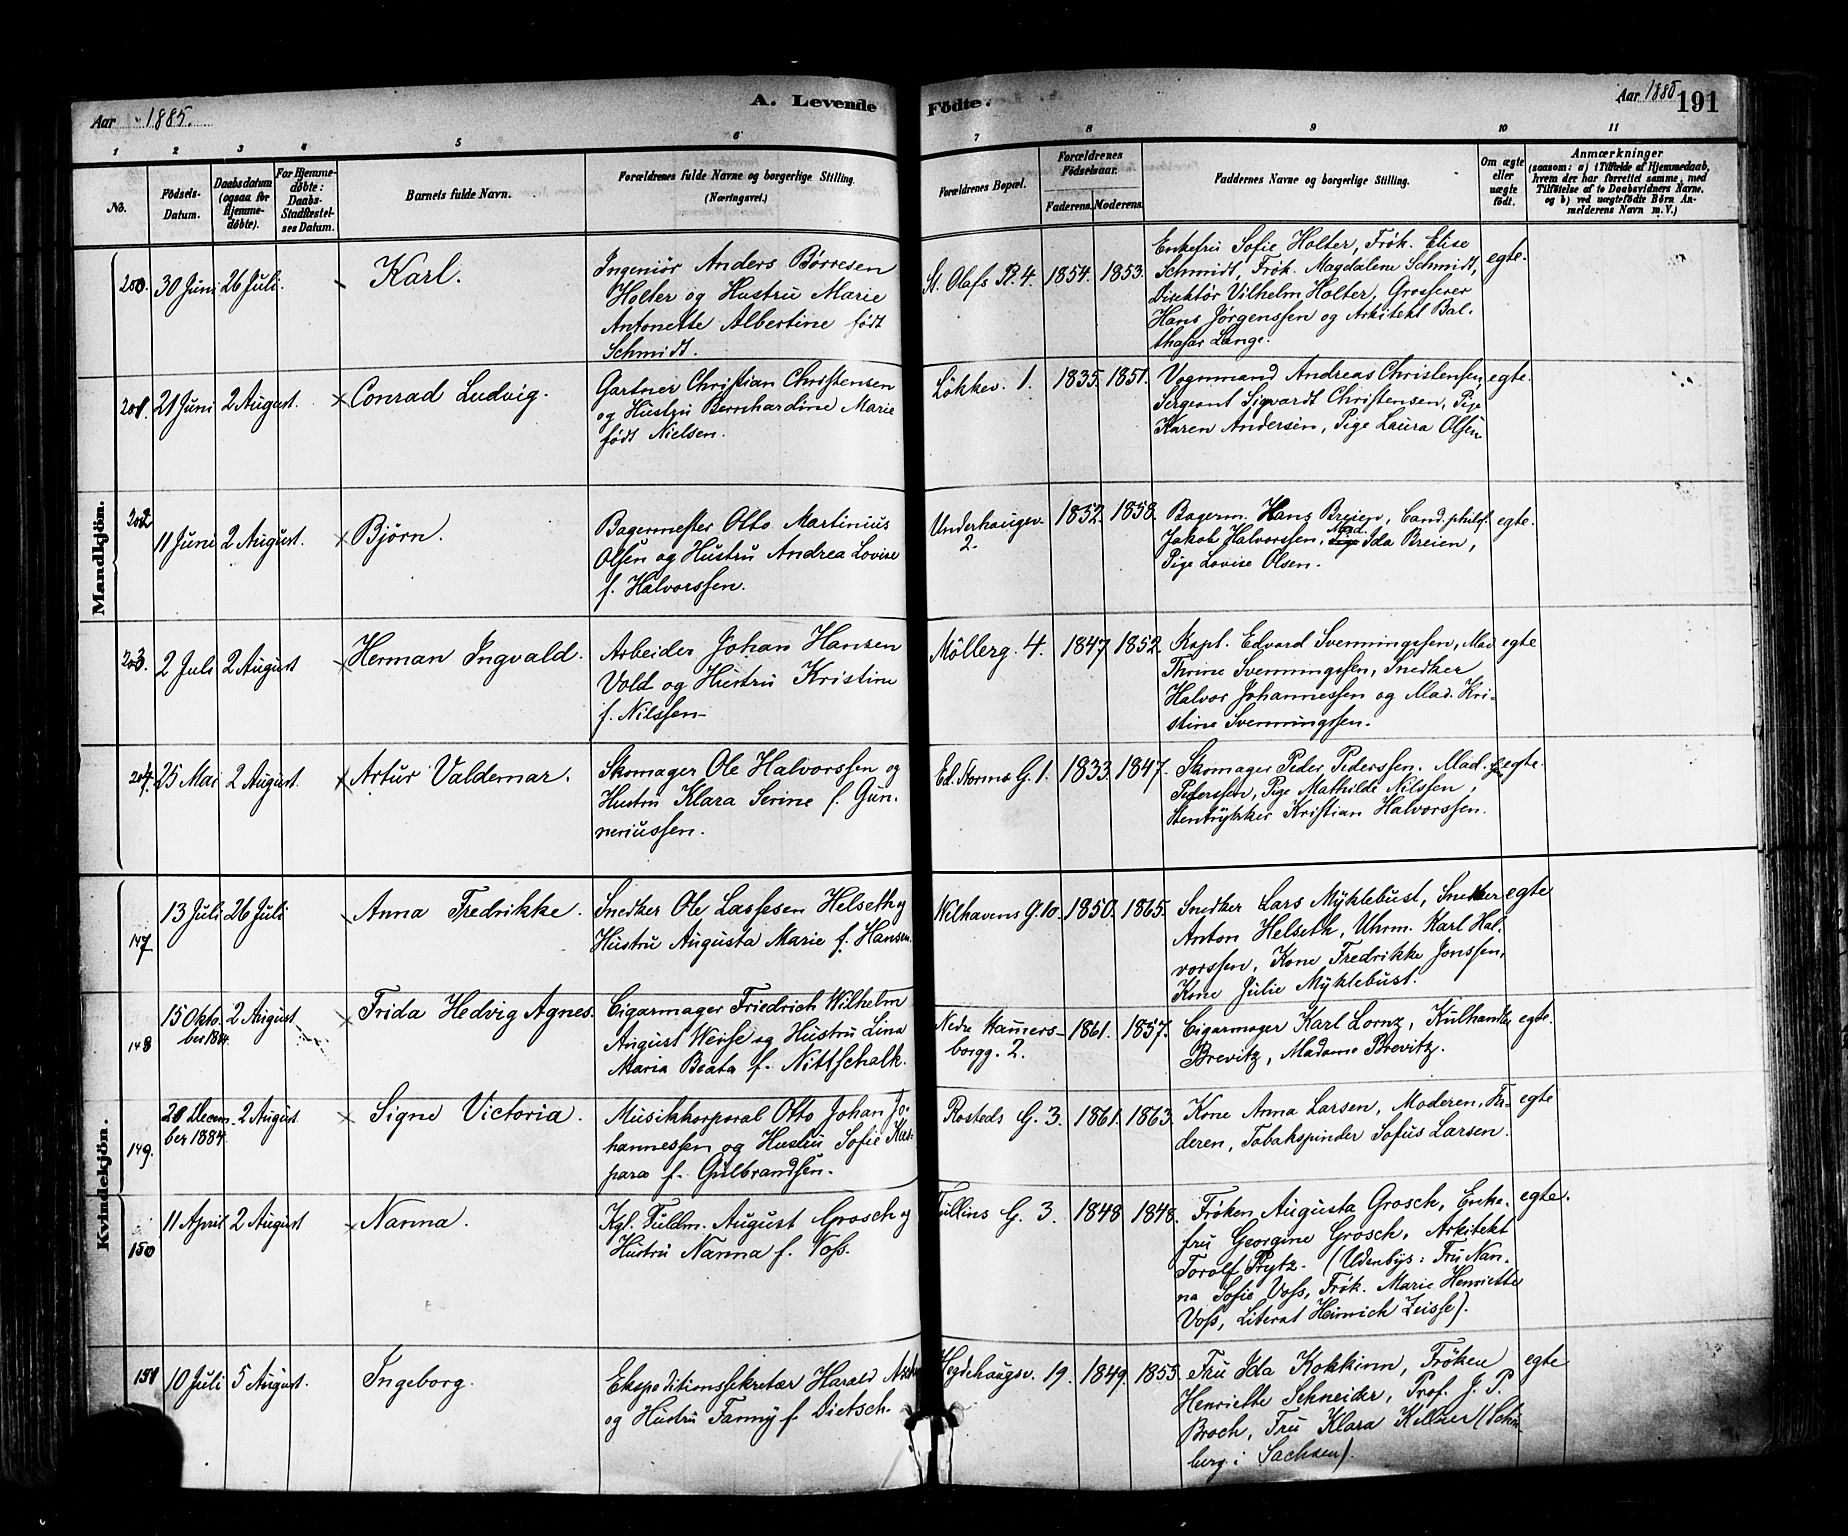 Aar 1885.
A. Levende Fødte.
Aar 1885
191
1 2 3 4 5 6 7 8 9 10 11
No.
Fødsels-
Datum.
Daabsdatum
(ogsaa for
Hjemme-
døbte).
For Hjemme-
døbte:
Daabs-
Stadfæstel-
ses Datum.
Barnets fulde Navn.
Forældrenes fulde Navne og borgerlige Stilling.
(Næringsvei.)
Forældrenes Bopæl.
Forældrenes
Fødselsaar.
Faderens. Moderens.
Faddernes Navne og borgerlige Stilling.
Om ægte
eller
uægte
født.
Anmærkninger
(saasom: a) i Tilfælde af Hjemmedaab,
hvem der har forrettet samme, med
Tilføielse af to Daabsvidners Navne,
og b) ved uægtefødte Børn An-
melderens Navn m. V.)
Mandkjøn.
200. 30 Juni 26 Juli. Karl.
Ingeniør Anders Børresen
Holter og Hustru Marie
Antonette Albertine født
Schmidt.
St. Olafs Pl. 4 1854. 1853.
Enkefru Sofie Holter, Frøk. Elise
Schmidt, Frøk. Magdalene Schmidt,
Direktør Vilhelm Holter, Grosserer
Hans Jørgenssen og Arkitekt Bal-
thasar Lange.
egte.
201. 21 Juni 2 August. × Conrad Ludvig.
Gartner Christian Christensen
og Hustru Bernhardine Marie
født Nielsen.
Løkkev. 1. 1835. 1851.
Vognmand Andreas Christensen
Sergeant Sigvardt Christensen, Pige
Karen Andersen, Pige Laura Olsen
egte.
202 11 Juni 2 August. × Bjørn.
Bagermester Otto Martinius
Olsen og Hustru Andrea Lovise
f. Halvorssen.
Underhaugsv.
2.
1832. 1858.
Bagerm. Hans Breien, Cand. philos.
Jakob Halvorssen, Mad. Ida Breien,
Pige Lovise Olsen.
egte.
203. 2 Juli 2 August × Herman Ingvald.
Arbeider Johan Hansen
Vold og Hustru Kristine
f. Nilssen
Møllerg. 4. 1847 1852.
Kapt. Edvard Svenningssen, Mad
Thrine Svenningssen, Snedker
Halvor Johannessen og Mad. Kri-
stine Svenningssen.
egte
204. 25 Mai 2 August. × Artur Valdemar.
Skomager Ole Halvorssen og
Hustru Klara Serine f. Gun-
neriussen.
Ed. Storms G. 1. 1833. 1847.
Skomager Peder Pederssen. Mad.
Pederssen, Pige Mathilde Nilssen,
Stentrykker Kristian Halvorssen.
egte.
Kvindekjøn.
147 13 Juli 26 Juli Anna Fredrikke.
Snedker Ole Lassesen Helseth og
Hustru Augusta Marie f. Hansen.
Welhavens G. 10. 1850. 1865.
Snedker Lars Myklebust, Snekker
Anton Helseth, Uhrm. Karl Hal-
vorssen, Kone Fredrikke Jonssen,
Kone Julie Myklebust.
egte
148 15 Okto-
ber 1884. 2 August × Frida Hedvig Agnes.
Cigarmager Friedrich Wilhelm
August Weise og Hustru Lina
Maria Beata f. Nittschalk.
Nedre Hammers-
borgg. 2.
1861. 1857.
Cigarmager Karl Lornz, Kulhandler
Brevitz, Madame Brevitz.
egte.
149. 20 Decem-
ber 1884. 2 August × Signe Victoria.
Musikkorporal Otto Johan Jo-
hannessen og Hustru Sofie Kas-
para f. Gulbrandsen.
Rosteds G. 3. 1861. 1863.
Kone Anna Larsen, Moderen, Fa-
deren, Tobakspinder Sofus Larsen.
egte
150 11 April 2 August × Nanna.
Kgl. Fuldm. August Grosch og
Hustru Nanna f. Voss.
Tullins G. 3. 1848 1848.
Frøken Augusta Grosch, Enke-
fru Georgine Grosch, Arkitekt
Torolf Prytz. (Udenbys: Fru Nan-
na Sofie Voss, Frøk. Marie Henriette
Voss, Literat Heinrich Zeisse).
egte.
151 10 Juli 5 August. Ingeborg.
Ekspeditionssekretær Harald
og Hustru Fanny f. Dietsch.
Hegdehaugsv. 19. 1849. 1855.
Fru Ida Kokkinn, Frøken
Henriette Schneider, Prof. J. P.
Broch, Fru Klara Kellner (Schn-
berg i Sachsen).
egte